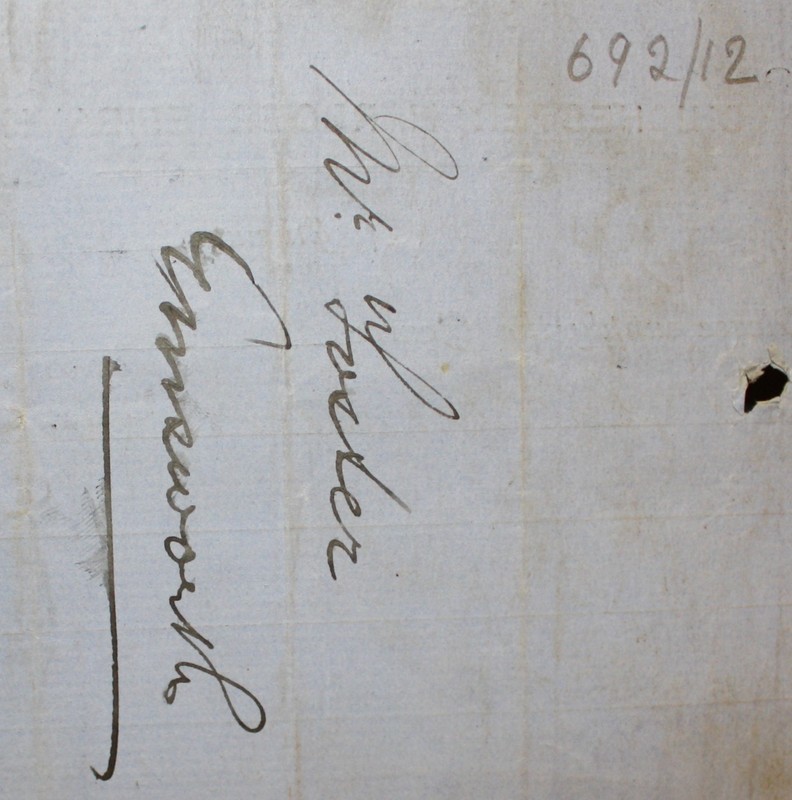 692/12
Mr. Foster
Emsworth